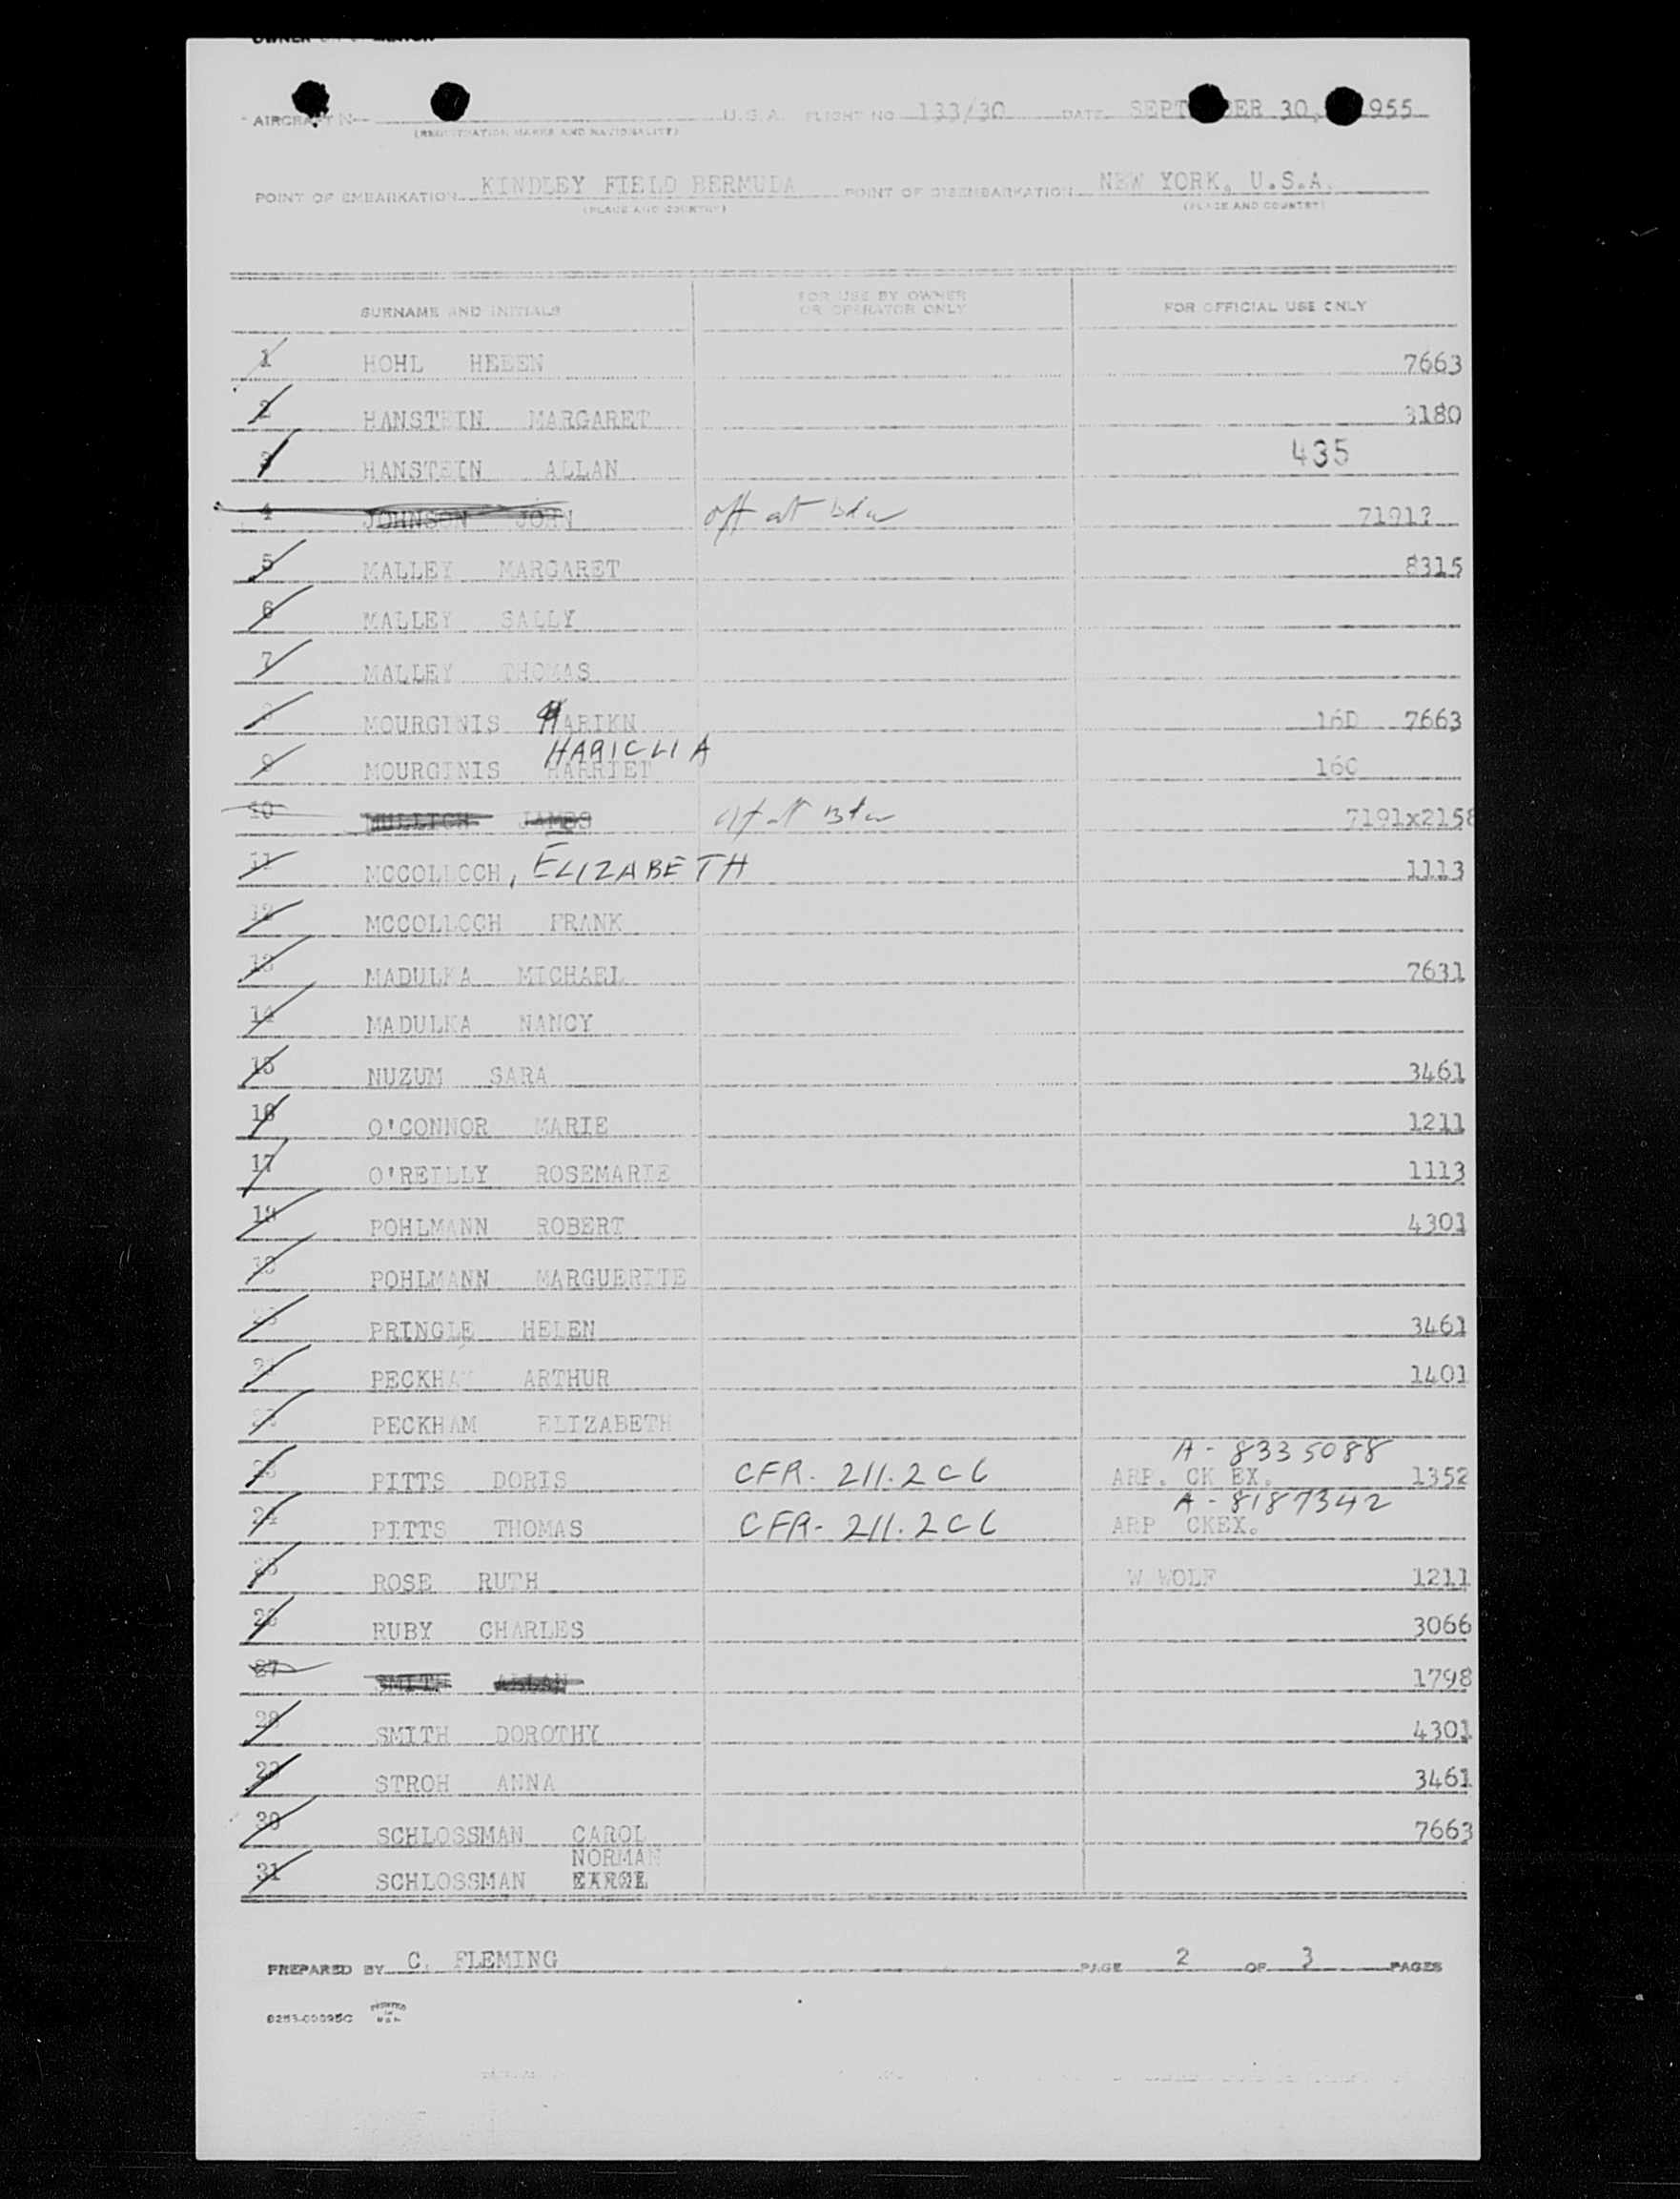 AIRCRAFT N U.S.A. FLIGHT NO 133/30 DATE SEPT ER 30, 1955
(REGISTRATION MARKS AND NATIONALITY)
POINT OF EMBARKATION KINDLEY FIELD BERMUDA POINT OF DISEMBARKATION NEW YORK, U.S.A.
(PLACE AND COUNTRY) (PLACE AND COUNTRY)
SURNAME AND INITIALS FOR USE BY OWNER OR OPERATOR ONLY FOR OFFICIAL USE ONLY
1 HOHL HELEN 7663
2 HANSTEIN MARGARET 3180
3 HANSTEIN ALLAN 435
4 JOHNSON JOHN off at bda 7191?
5 MALLEY MARGARET 8315
6 MALLEY SALLY
7 MALLEY THOMAS
8 MOURGINIS HARIKN 16D 7663
HARICLIA
9 MOURGINIS HARRIET 16C
10 JAMES off at Bda 7191x2158
11 MCCOLLOCH, ELIZABETH 1113
12 MCCOLLOCH FRANK
13 MADULKA MICHAEL 7631
14 MADULKA NANCY
15 NUZUM SARA 3461
16 O'CONNOR MARIE 1211
17 O'REILLY ROSEMARIE 1113
18 POHLMANN ROBERT 4301
19 POHLMANN MARGUERTIE
20 PRINGLE HELEN 3461
21 PECKHAM ARTHUR 1401
22 PECKHAM ELIZABETH
A-8335088
23 PITTS DORIS CFR. 211.2C6 ARP. CK EX. 1352
A-8187342
24 PITTS THOMAS CFR- 211.2C6 ARP CKEX.
25 ROSE RUTH W WOLF 1211
26 RUBY CHARLES 3066
27 SMITH ALLAN 1798
28 SMITH DOROTHY 4301
29 STROH ANNA 3461
30 SCHLOSSMAN CAROL 7663
NORMAN
31 SCHLOSSMAN
PREPARED BY C. FLEMING PAGE 2 OF 3 PAGES
PRINTED IN U.S.A.